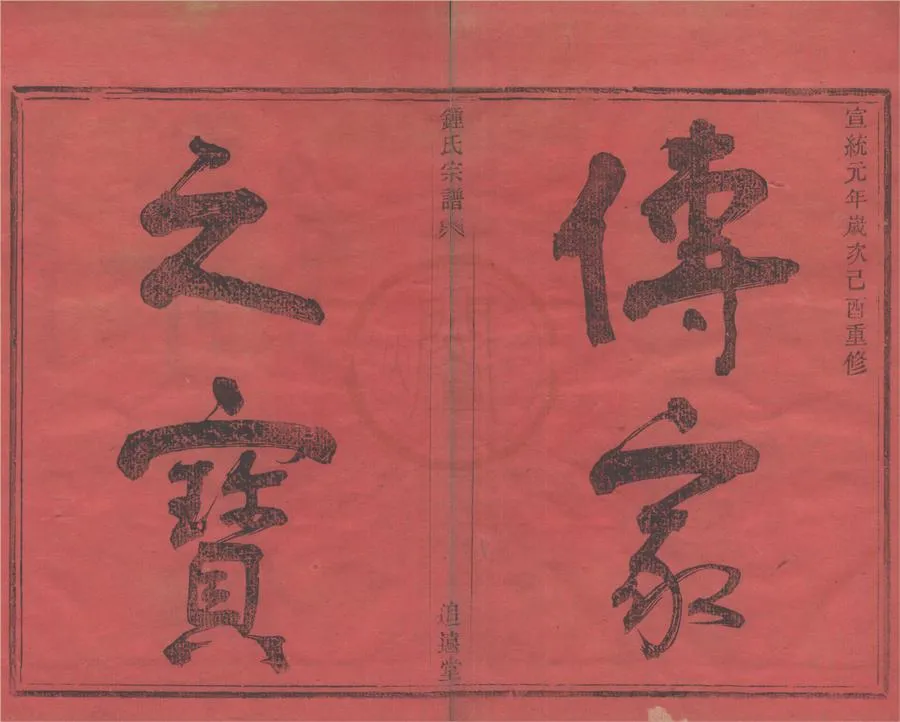 宣統元年歲次己酉重修
傳家
之寶
鍾氏宗譜
追遠堂